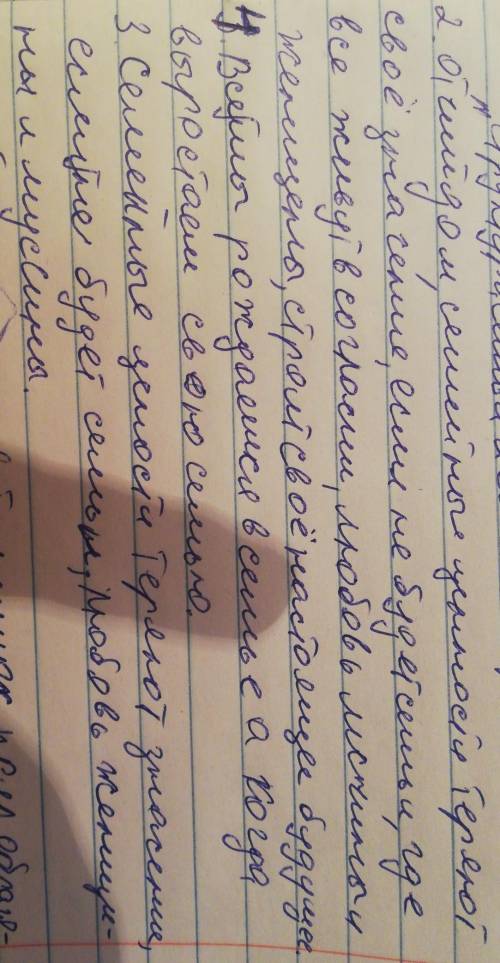 2. Отчий дом, семейные ценности теряют
своё значение, если не будет семьи, где
все живут в согласии, любовь мужчины и
женщены, строит своё настоящее будущее.
4. Все мы рождаемся в семье а когда
выростаем свою семью.
3 Семейные ценности теряют значение,
если не будет семьи, любовь женщи-
ны и мущины.